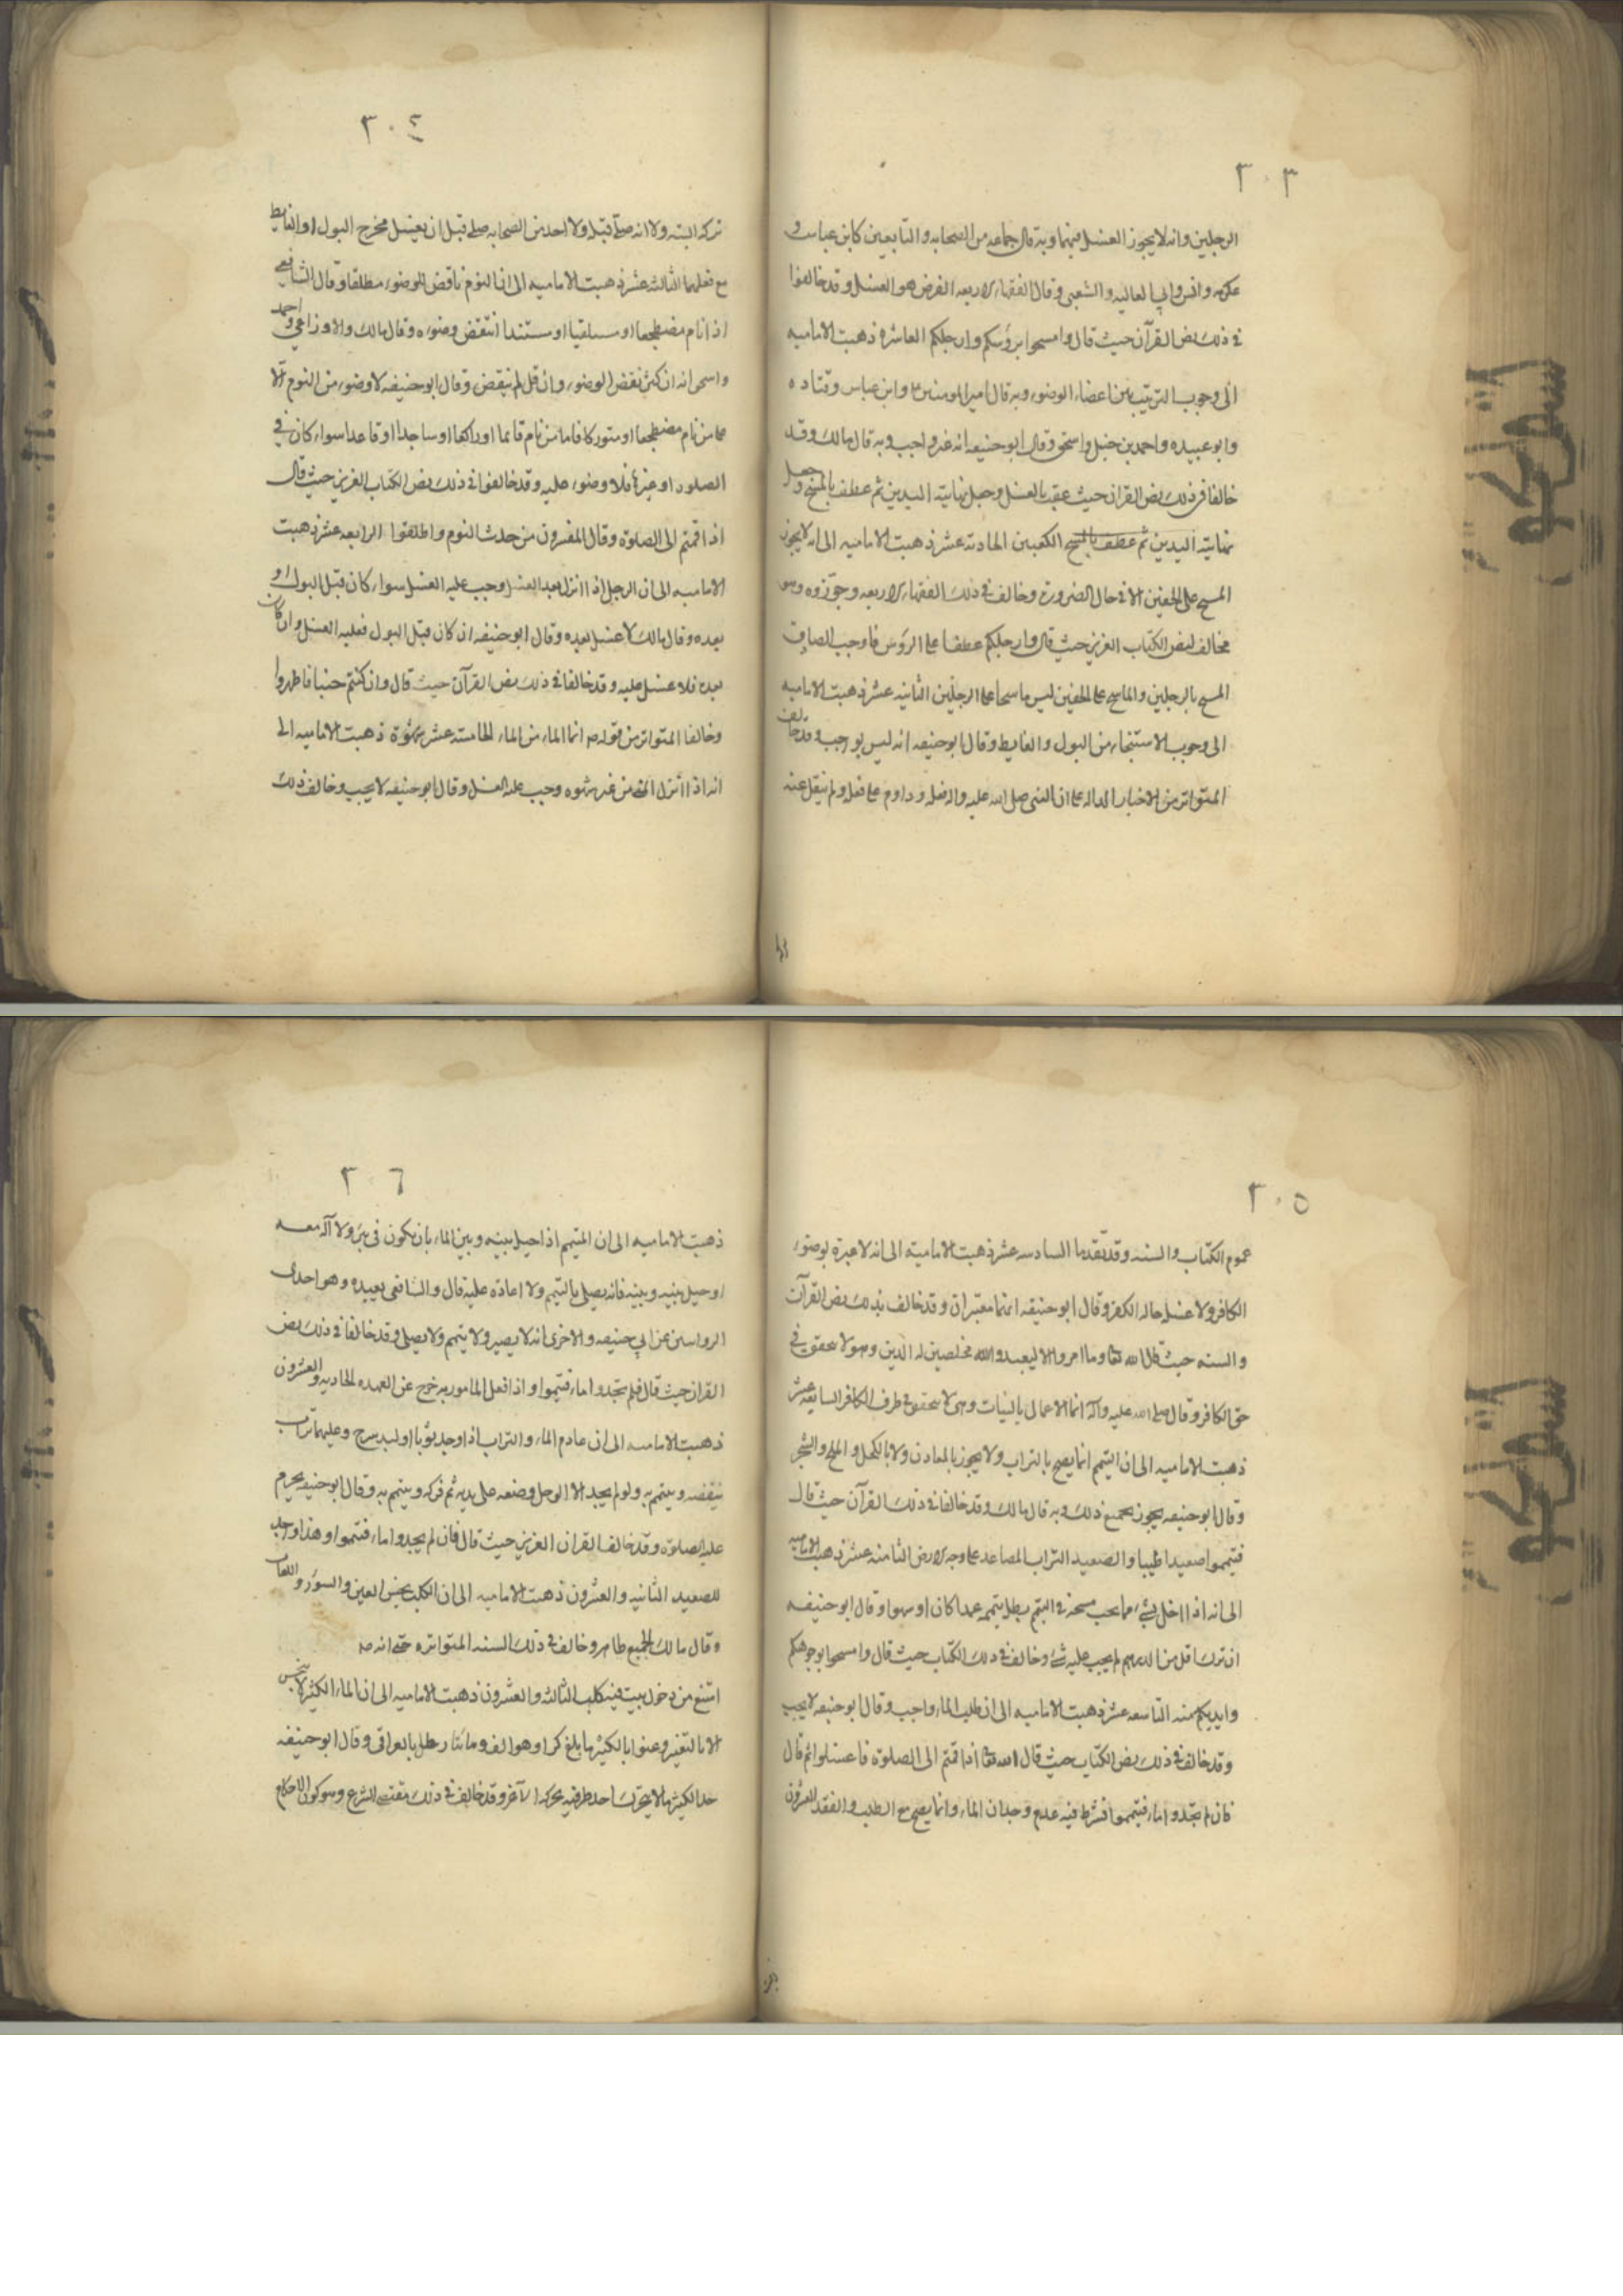 ٣٠٣
الرجلين وانه لا يجوز الغسل فيهما وبه قال جماعه من الصحابه والتابعين كابن عباس و
عكرمه وانس وابي العاليه والشعبي وقال الفقهاء الاربعه الفرض هو الغسل وقد خالفوا
في ذلك نص القرآن حيث قال وامسحوا برؤسكم وارجلكم العاشرة ذهبت الاماميه
الى وجوب الترتيب بين اعضاء الوضوء وبه قال امير المومنين ع وابن عباس وقتاده
وابو عبيده واحمد بن حنبل واسحق وقال ابو حنيفه انه غير واجب وبه قال مالك وقد
خالفا في ذلك نص القران حيث عقب بالغسل وجعل نهايته اليدين ثم عطف بالمسح وجعل
نهايته اليدين ثم عطف بالمسح الكعبين الحاديه عشر ذهبت الاماميه الى انه لا يجوز
المسح على الخفين الا في حال الضرورة وخالف في ذلك الفقهاء الاربعه وجوّزوه وهو
مخالف لنص الكتاب العزيز حيث قال وارجلكم عطفا على الرؤس فاوجب الصاق
المسح بالرجلين والماسح على الخفين ليس ماسحا على الرجلين الثانيه عشر ذهبت الاماميه
الى وجوب الاستنجاء من البول والغايط وقال ابو حنيفه انه ليس بواجب وقد خالف
المتواتر من الاخبار الداله على ان النبي صلى الله عليه واله فعله وداوم على فعله ولم ينقل عنه
٣٠٤
تركه البته ولا انه صلى قبله ولا احد من الصحابه صلى قبل ان يغسل مخرج البول او الغايط
مع فعلهما الثالثه عشر ذهبت الاماميه الى ان النوم ناقض للوضوء مطلقا وقال الشافعي
اذا نام مضطجعا او مستلقيا او مستندا انتقض وضوءه وقال مالك والاوزاعي واحمد
واسحق انه ان كثر نقض الوضوء وان قل لم ينقض وقال ابو حنيفه لا وضوء من النوم الا
على من نام مضطجعا او متوركا فاما من نام قائما او راكعا او ساجدا او قاعدا سواء كان في
الصلوه او غيرها فلا وضوء عليه وقد خالفوا في ذلك نص الكتاب العزيز حيث قال
اذا قمتم الى الصلوة وقال المفسرون من حدث النوم واطلقوا الرابعه عشر ذهبت
الاماميه الى ان الرجل اذا انزل بعد الغسل وجب عليه الغسل سواء كان قبل البول او
بعده وقال مالك لا غسل بعده وقال ابو حنيفه ان كان قبل البول فعليه الغسل وان كان
بعده فلا غسل عليه وقد خالفا في ذلك نص القرآن حيث قال وان كنتم جنبا فاطهروا
وخالفا المتواتر من قوله ص انما الماء من الماء الخامسه عشر ذهبت الاماميه الى
انه اذا انزل الماء من غير شهوه وجب عليه الغسل وقال ابو حنيفه لا يجب وخالف في ذلك
٣٠٥
عموم الكتاب والسنه وقد تقدما السادسه عشر ذهبت الاماميه الى انه لا عبرة بوضوء
الكافر ولا غسله حاله الكفر وقال ابو حنيفه انهما معتبران وقد خالف بذلك نص القرآن
والسنه حيث قال الله تعا وما امروا الا ليعبدوا الله مخلصين له الدين وهو لا يتحقق في
حق الكافر وقال صلى الله عليه وآله انما الاعمال بالنيات وهي لا تتحقق في طرف الكافر السابعه عشر
ذهبت الاماميه الى ان التيمم انما يصح بالتراب ولا يجوز بالمعادن ولا بالكحل والملح والشجر
وقال ابو حنيفه يجوز بجميع ذلك وبه قال مالك وقد خالفا في ذلك القرآن حيث قال
فتيمموا صعيدا طيبا والصعيد التراب المصاعد على وجه الارض الثامنه عشر ذهبت الاماميه
الى انه اذا اخل بشيء مما يجب مسحه في التيمم بطل تيممه عمدا كان او سهوا وقال ابو حنيفه
ان ترك اقل من الدرهم لم يجب عليه شيء وخالف في ذلك الكتاب حيث قال وامسحوا بوجوهكم
وايديكم منه التاسعه عشر ذهبت الاماميه الى ان طلب الماء واجب وقال ابو حنيفه لا يجب
وقد خالف في ذلك نص الكتاب حيث قال الله تعا اذا قمتم الى الصلوة فاغسلوا ثم قال
فان لم تجدوا ماء فتيمموا فشرط فيه عدم وجدان الماء وانما يصح مع الطلب والفقد العشرون
٣٠٦
ذهبت الاماميه الى ان المتيمم اذا حيل بينه وبين الماء بان يكون في بئر ولا آلة معه
او حيل بينه وبينه فانه يصلي بالتيمم ولا اعادة عليه قال والشافعي يعيده وهو احدى
الروايتين عن ابي حنيفه والاخرى انه لا يصير ولا يتيمم ولا يصلي وقد خالفا في ذلك نص
القران حيث قال فلم تجدوا ماء فتيمموا واذا فعل المامور به خرج عن العهده الحاديه والعشرون
ذهبت الاماميه الى ان عادم الماء والتراب اذا وجد ثوبا او لبد سرج وعليهما تراب
ينفضه ويتيمم به ولو لم يجد الا الوحل وضعه على يديه ثم فركه ويتيمم به وقال ابو حنيفه يحرم
عليه الصلوة وقد خالف القران العزيز حيث قال فان لم يجدوا ماء فتيمموا وهذا واجد
للصعيد الثانيه والعشرون ذهبت الاماميه الى ان الكلب نجس العين والسؤر واللعاب
وقال مالك الجميع طاهر وخالف في ذلك السنه المتواتره حتى انه ص
امتنع من دخول بيت فيه كلب الثالثه والعشرون ذهبت الاماميه الى ان الماء الكثير لا ينجس
الا بالتغير وعنوا بالكثير ما بلغ كرا وهو الف ومائتا رطل بالعراقي وقال ابو حنيفه
حد الكثير ما لا يتحرك احد طرفيه بحركه الآخر وقد خالف في ذلك مقتضى الشرع وهو كون الاحكام